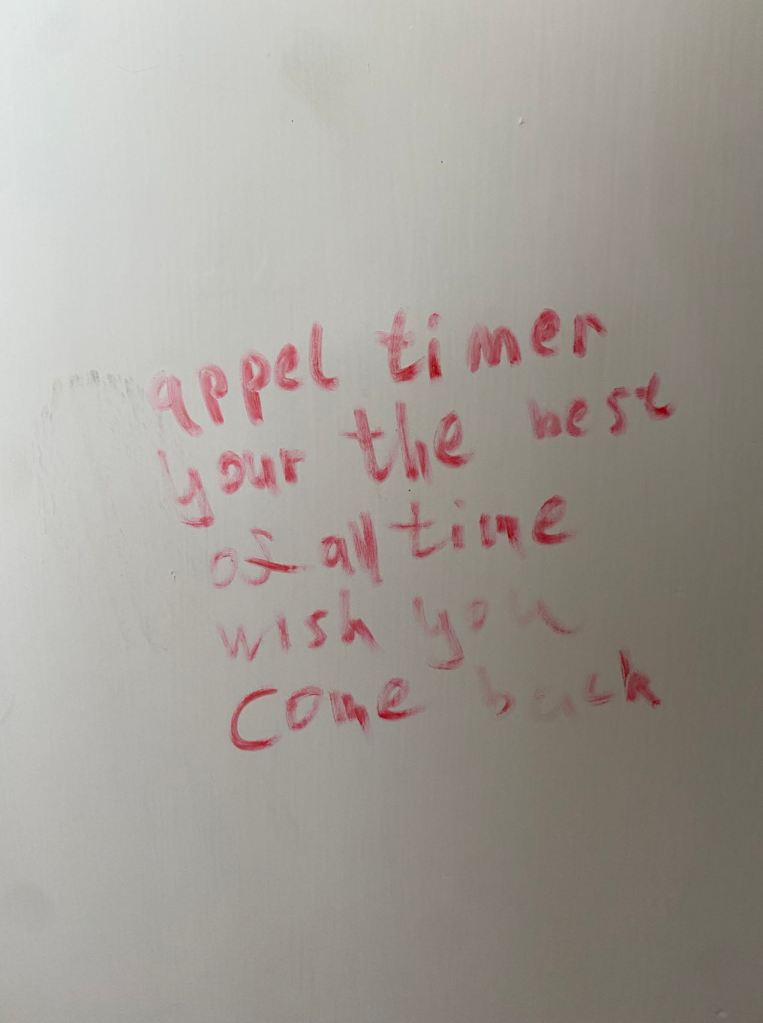 appel timer
your the best
of all time
wish you
come back